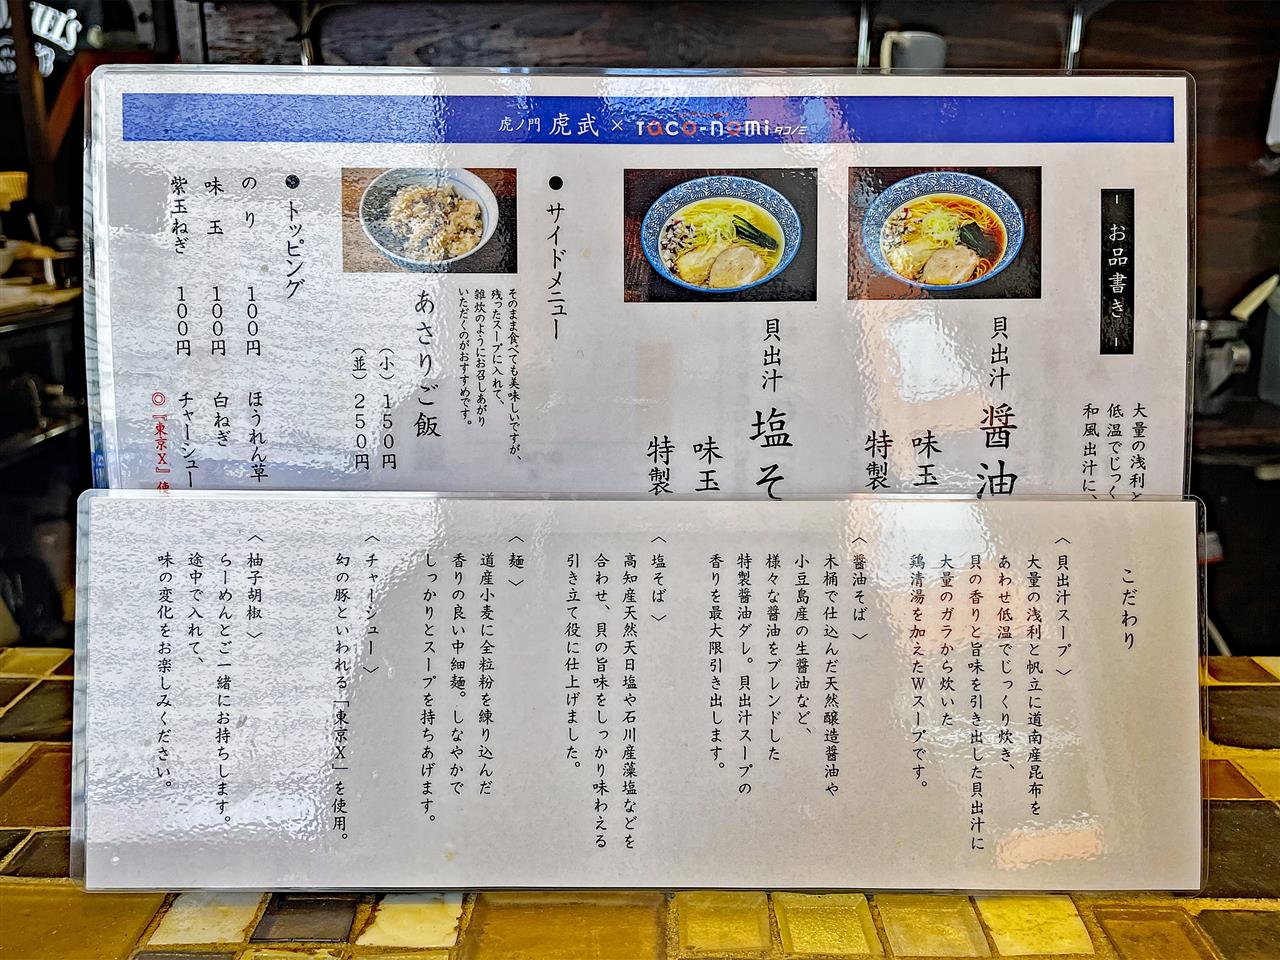 虎ノ門 虎武 × Taco-nomi タコノミ
お品書き
大量の浅利と
低温でじっく
和風出汁に、
貝出汁 醤油
味玉
特製
貝出汁 塩そ
味玉
特製
●サイドメニュー
そのまま食べても美味しいですが、
残ったスープに入れて、
雑炊のようにお召しあがり
いただくのがおすすめです。
あさりご飯
（小）150円
（並）250円
●トッピング
のり 100円 ほうれん草
味玉 100円 白ねぎ
紫玉ねぎ 100円 チャーシュー
◎『東京X』使
こだわり
〈貝出汁スープ〉
大量の浅利と帆立に道南産昆布を
あわせ低温でじっくり炊き、
貝の香りと旨味を引き出した貝出汁に
大量のガラから炊いた
鶏清湯を加えたWスープです。
〈醤油そば〉
木桶で仕込んだ天然醸造醤油や
小豆島産の生醤油など、
様々な醤油をブレンドした
特製醤油ダレ。貝出汁スープの
香りを最大限引き出します。
〈塩そば〉
高知産天然天日塩や石川産藻塩などを
合わせ、貝の旨味をしっかり味わえる
引き立て役に仕上げました。
〈麺〉
道産小麦に全粒粉を練り込んだ
香りの良い中細麺。しなやかで
しっかりとスープを持ちあげます。
〈チャーシュー〉
幻の豚といわれる「東京X」を使用。
〈柚子胡椒〉
らーめんとご一緒にお持ちします。
途中で入れて、
味の変化をお楽しみください。